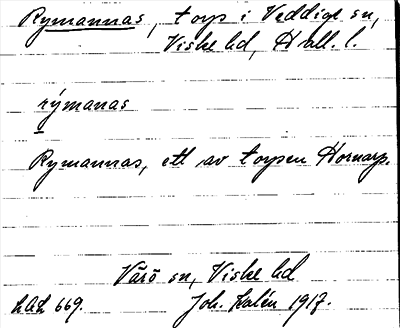 Rymannas, torp i Veddige sn,
Viske hd, Hall. l.
rýmanas
Rymannas, ett av torpen Hornarp.
Värö sn, Viske hd
LAL 669. Joh. Kalén 1917.